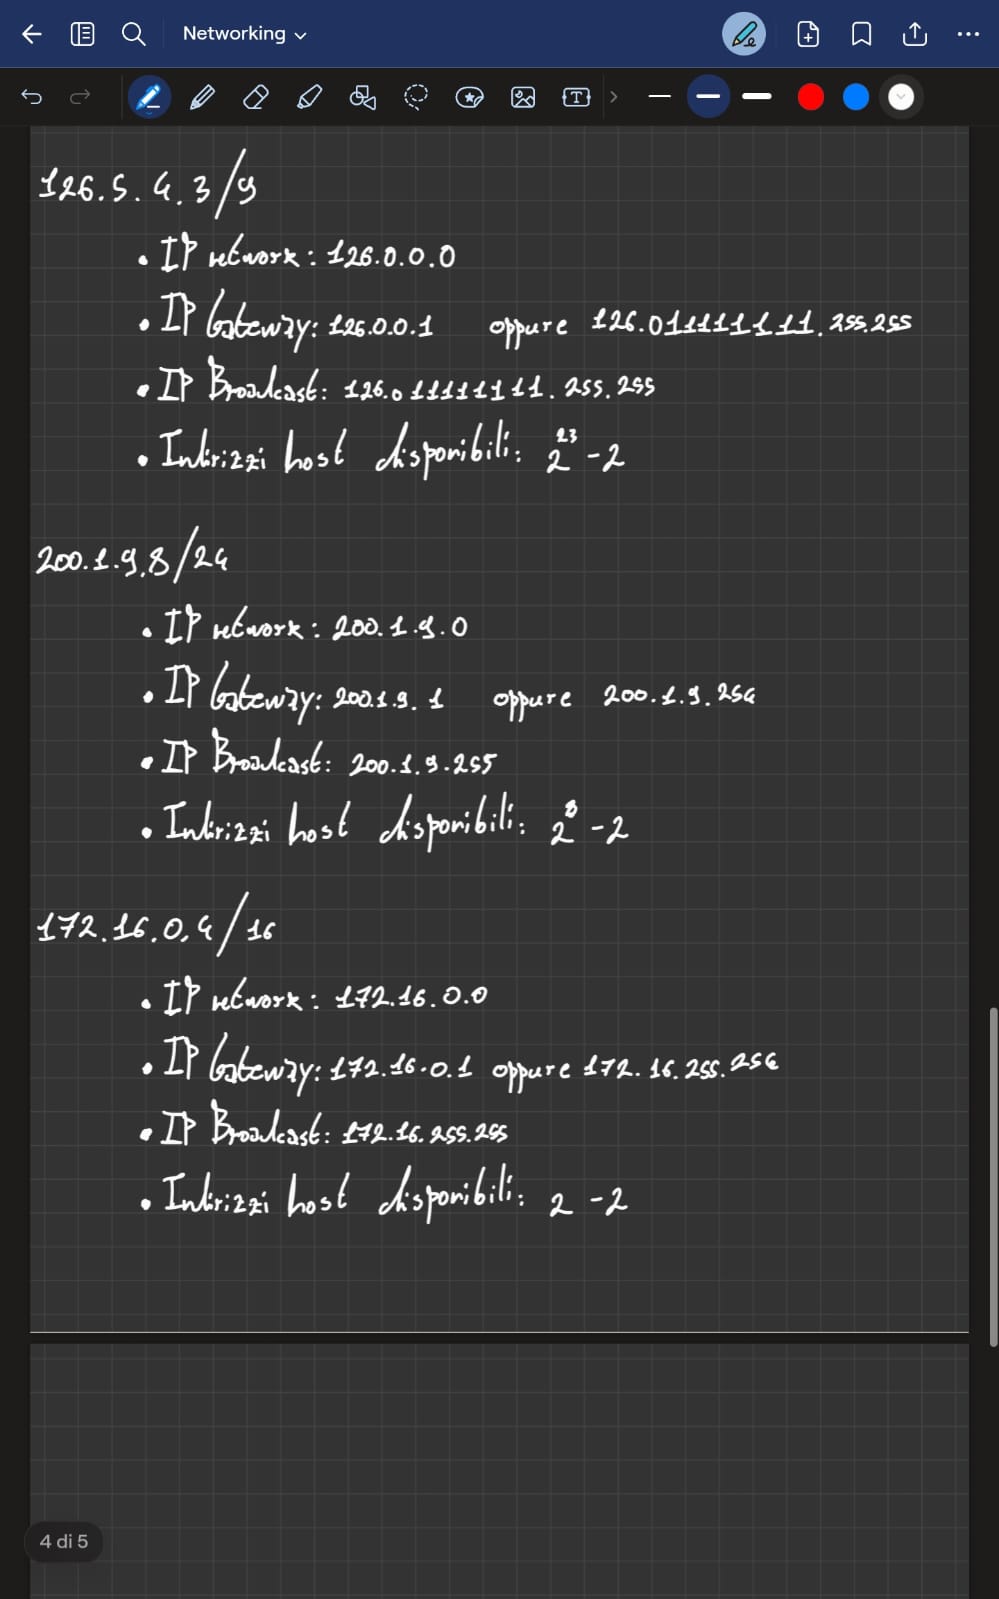 Networking
T
126.5.4.3/9
• IP network: 126.0.0.0
• IP Gateway: 126.0.0.1 oppure 126.011111111.255.255
• IP Broadcast: 126.011111111.255.255
• Indirizzi host disponibili: 2^23 -2
200.1.9.8/24
• IP network: 200.1.9.0
• IP Gateway: 200.1.9.1 oppure 200.1.9.254
• IP Broadcast: 200.1.9.255
• Indirizzi host disponibili: 2^8 -2
172.16.0.4/16
• IP network: 172.16.0.0
• IP Gateway: 172.16.0.1 oppure 172.16.255.254
• IP Broadcast: 172.16.255.255
• Indirizzi host disponibili: 2 -2
4 di 5